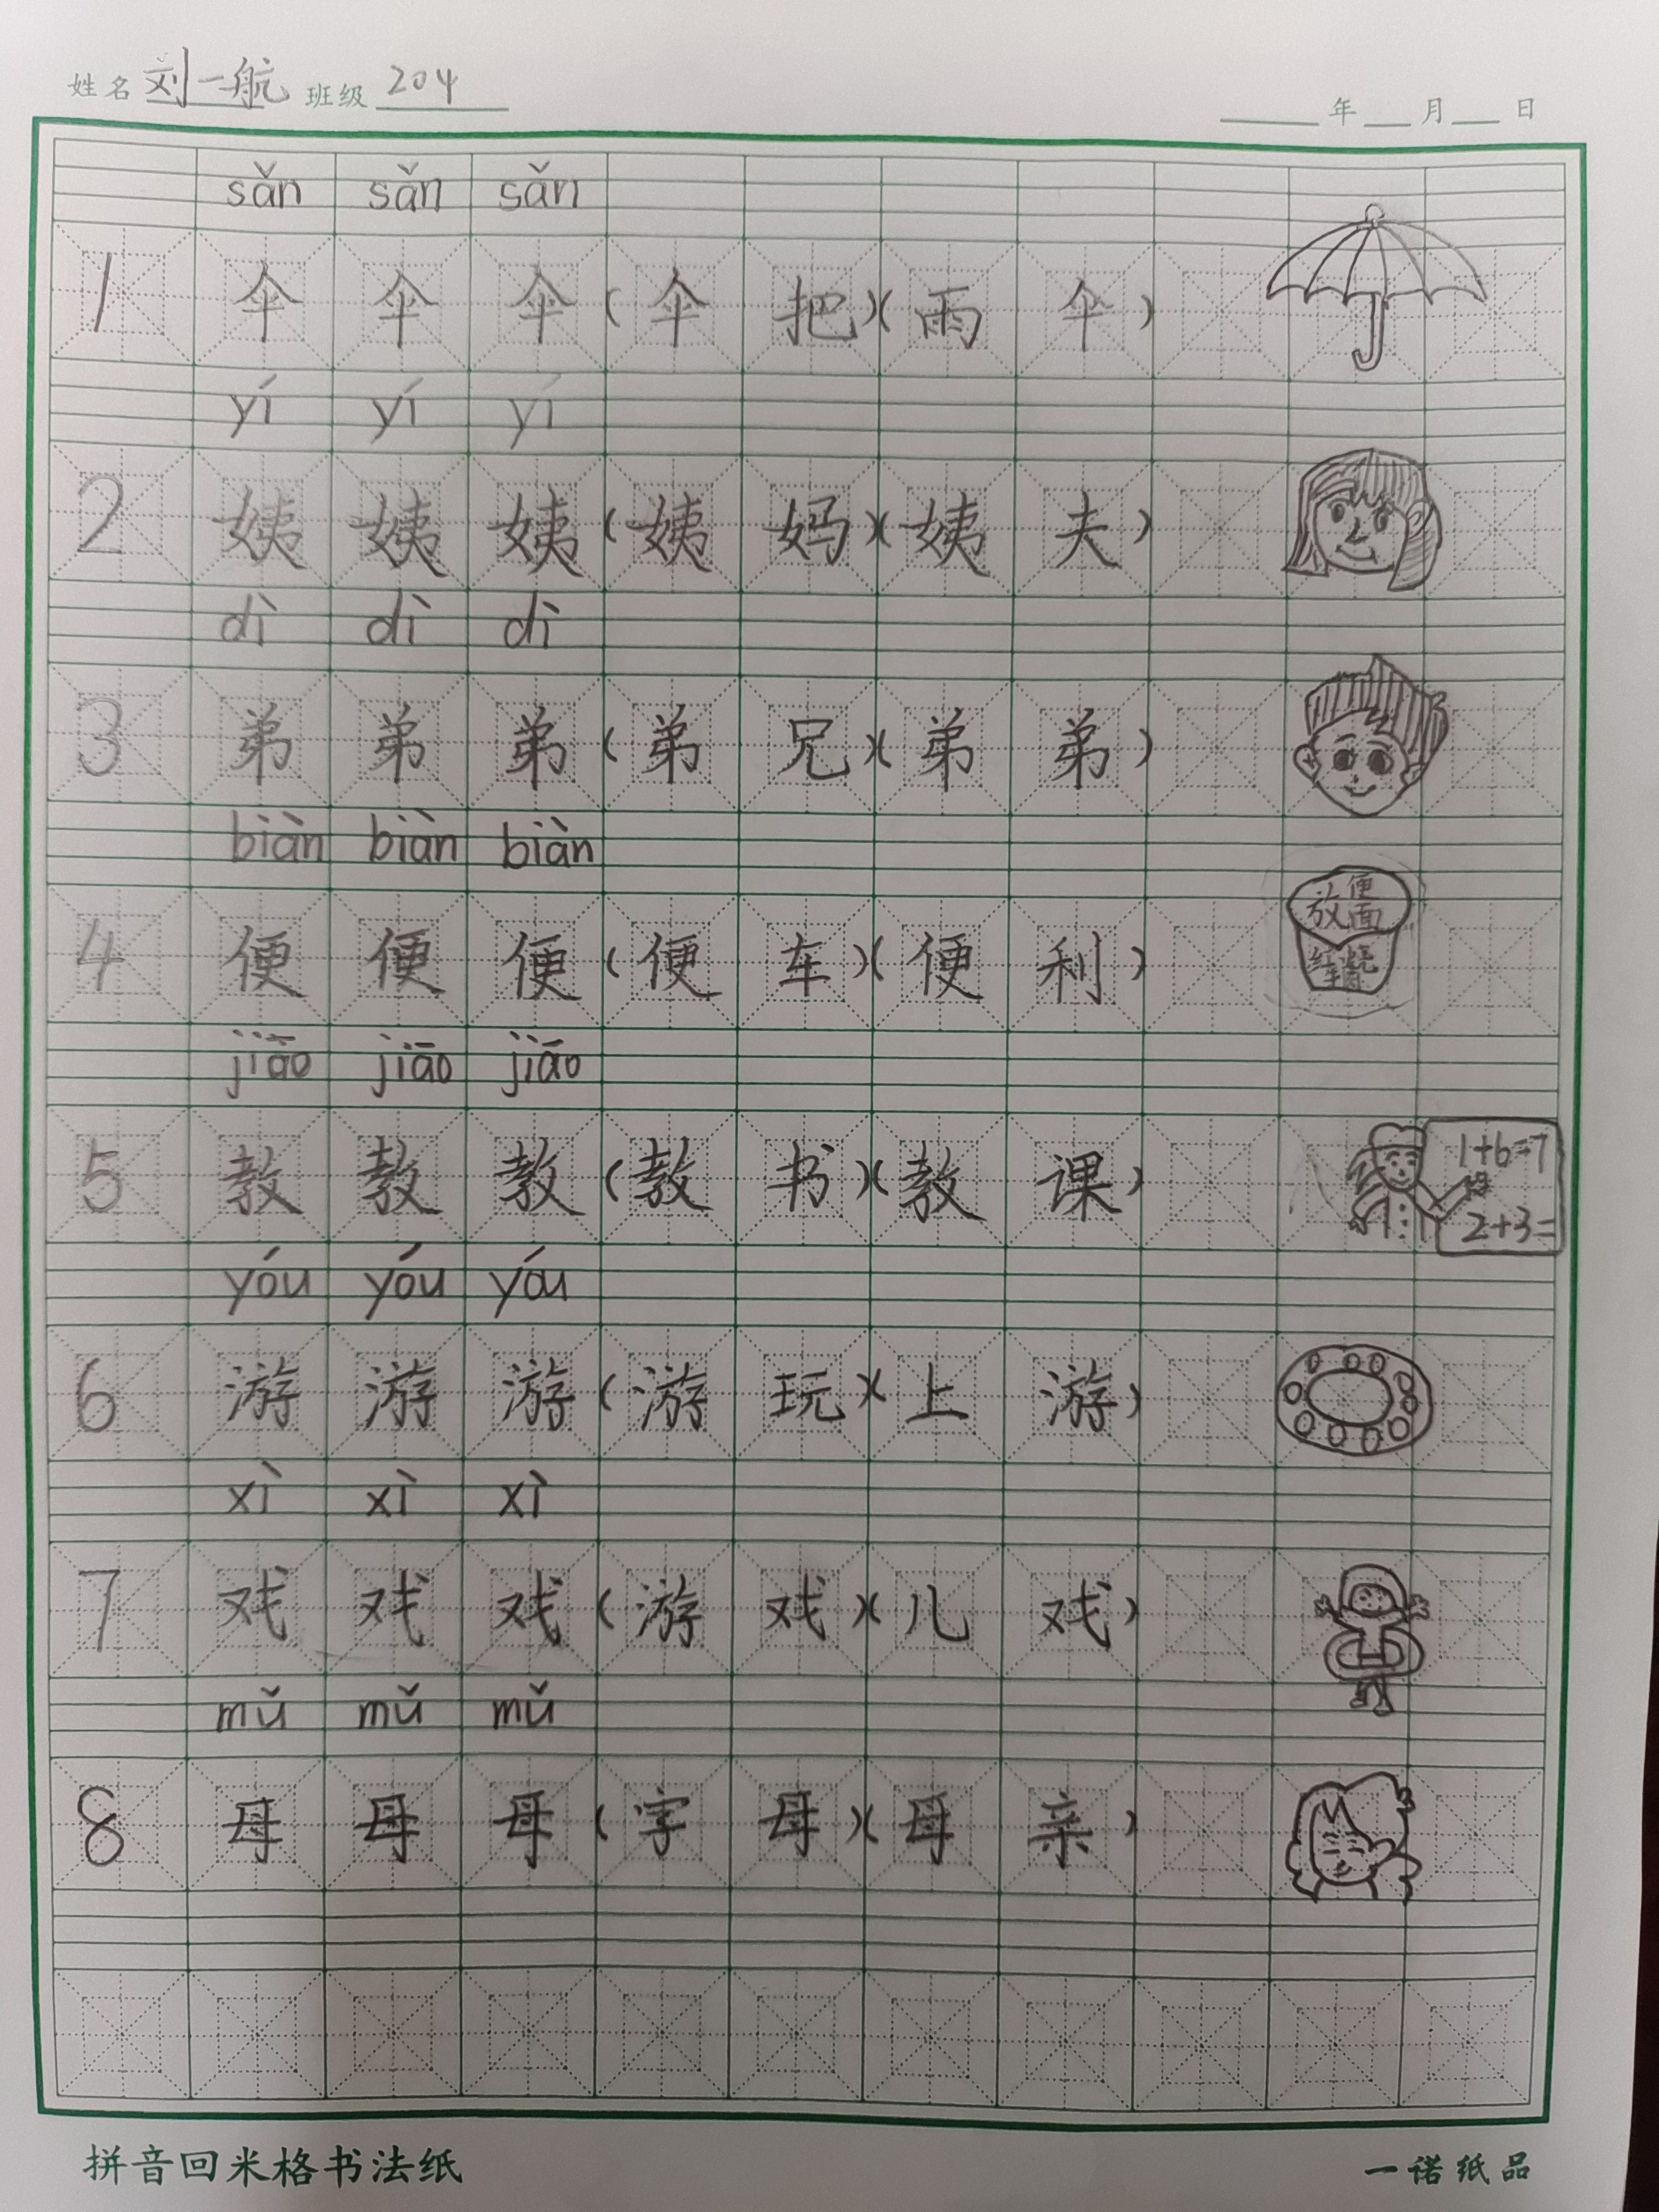 姓名 刘一航 班级 204 年 月 日
sǎn sǎn sǎn
1 伞 伞 伞 (伞 把)(雨 伞)
yí yí yí
2 姨 姨 姨 (姨 妈)(姨 夫)
dì dì dì
3 弟 弟 弟 (弟 兄)(弟 弟)
biàn biàn biàn
4 便 便 便 (便 车)(便 利)
放便面
红烧
jiāo jiāo jiāo
5 教 教 教 (教 书)(教 课)
1+6=7
2+3=
yóu yóu yóu
6 游 游 游 (游 玩)(上 游)
xì xì xì
7 戏 戏 戏 (游 戏)(儿 戏)
mǔ mǔ mǔ
8 母 母 母 (字 母)(母 亲)
拼音回米格书法纸 一诺纸品